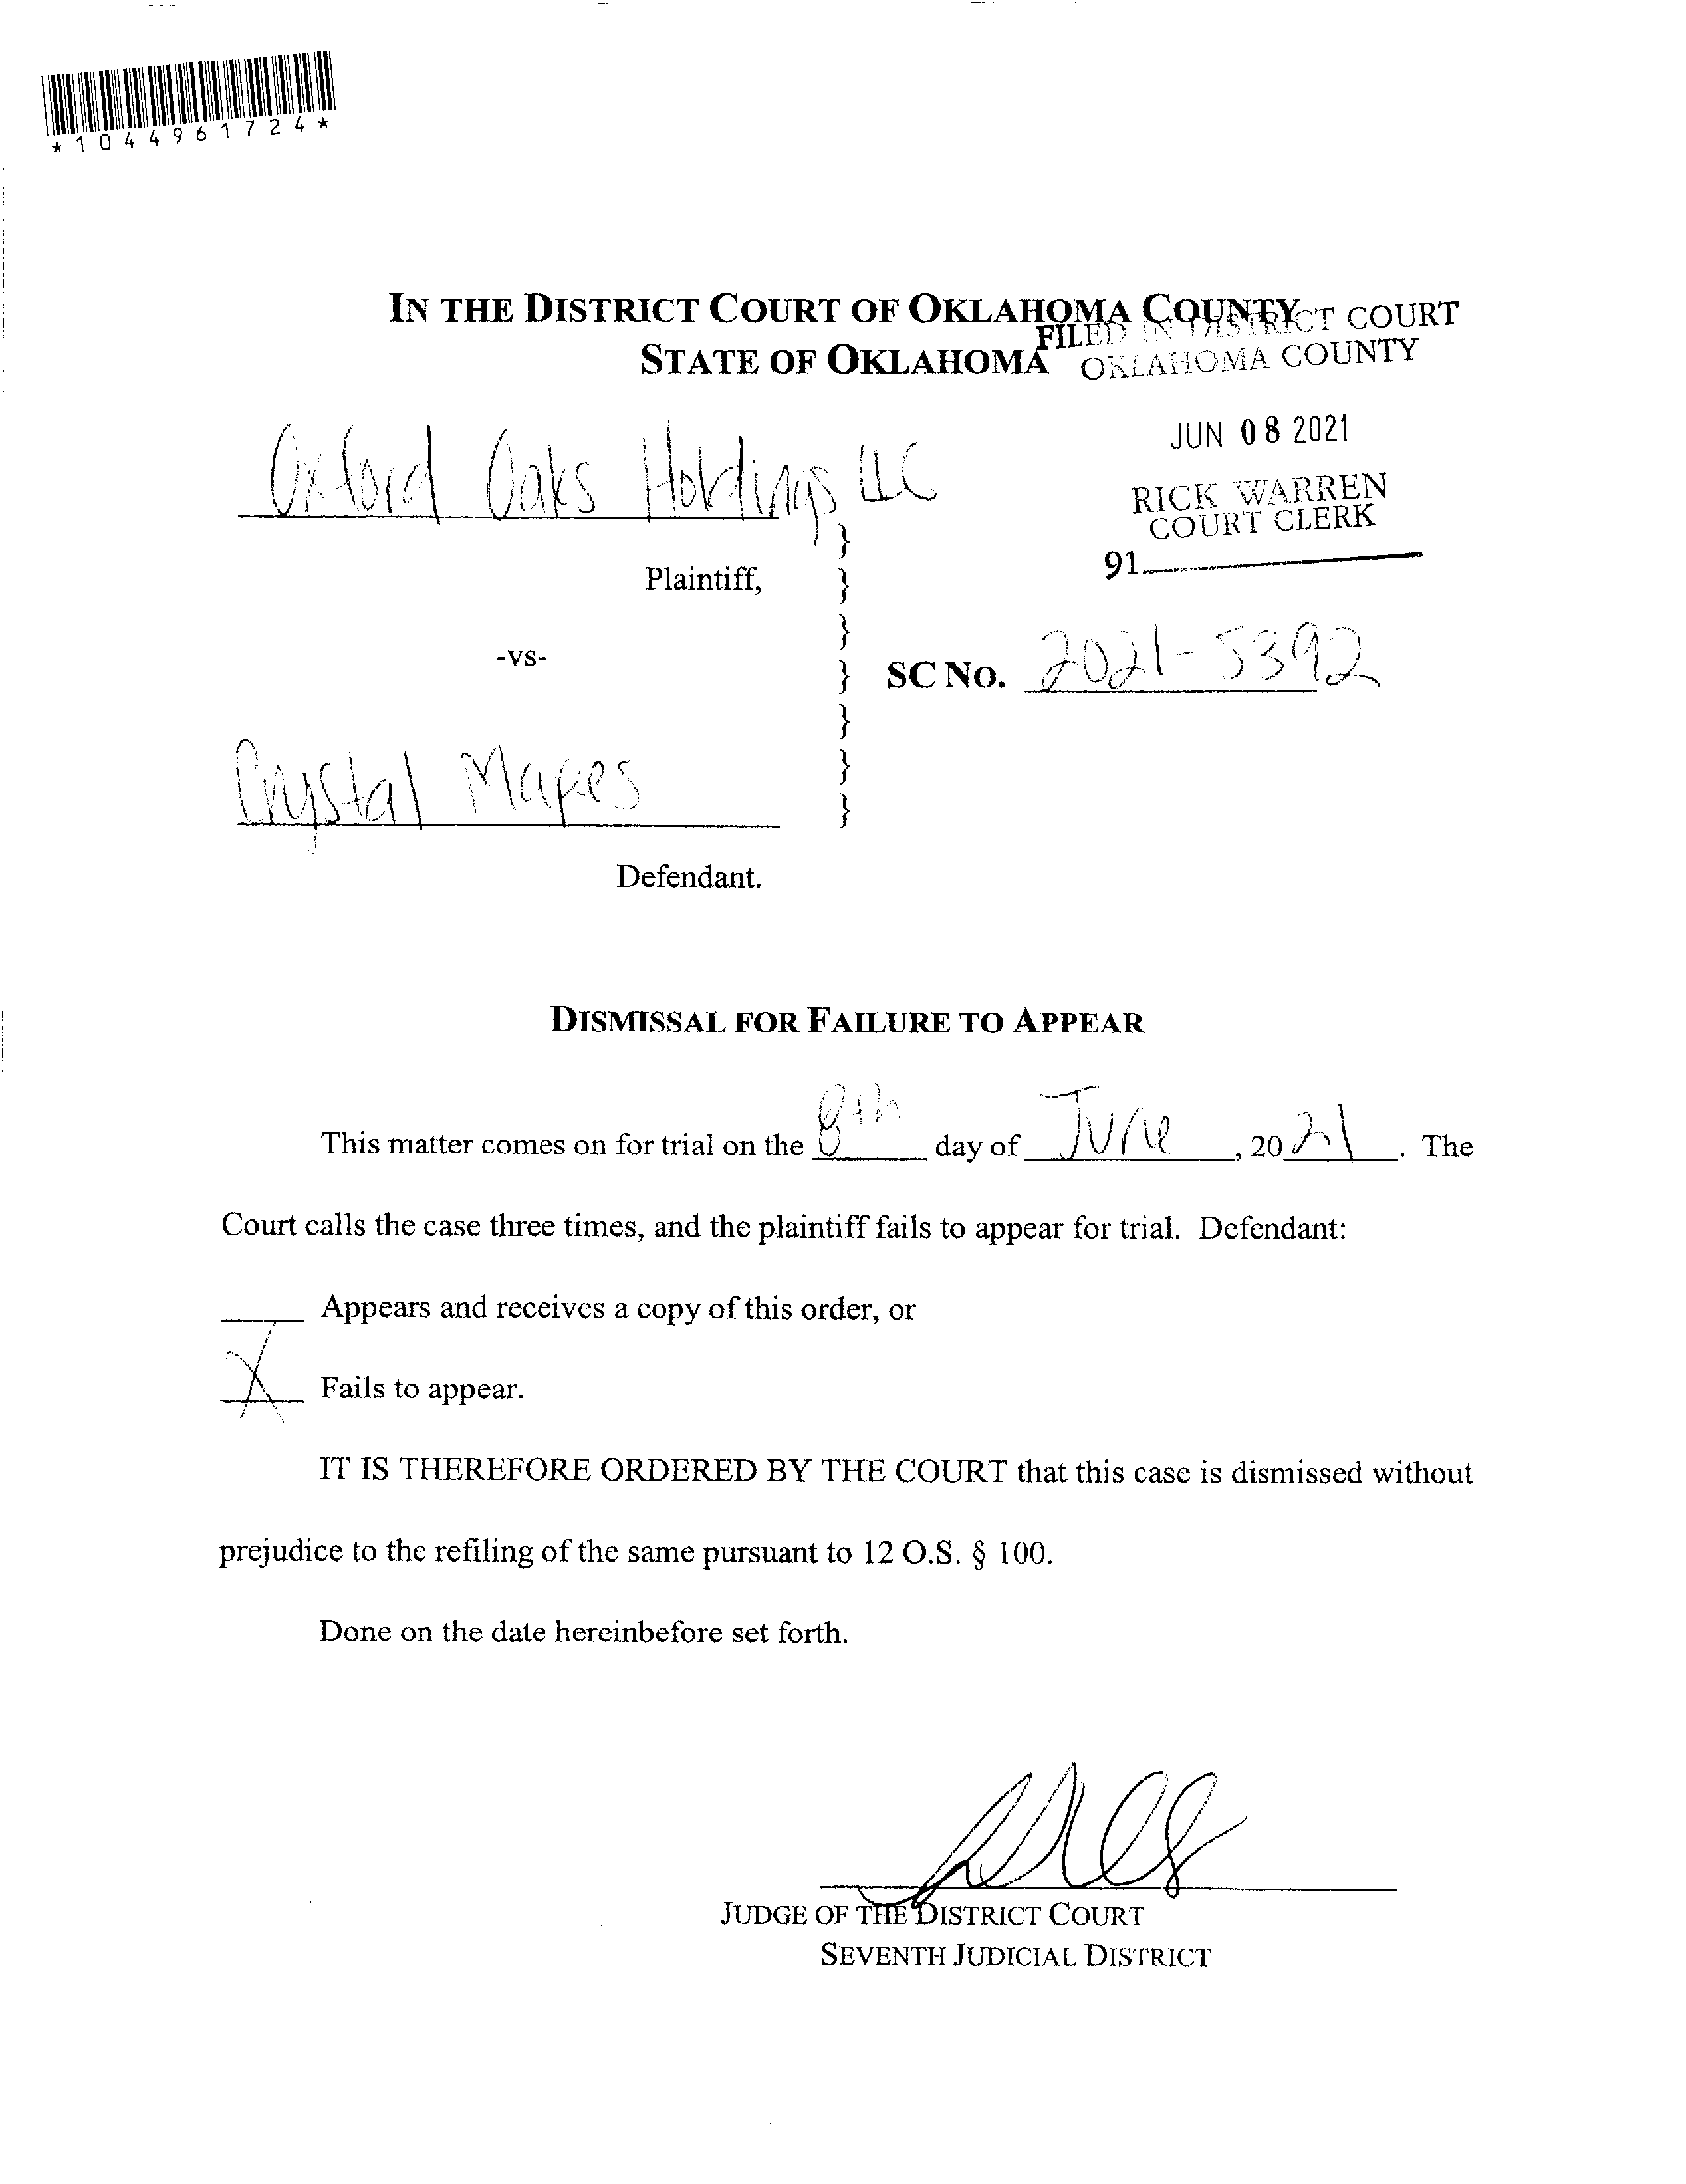 *1044961724*
IN THE DISTRICT COURT OF OKLAHOMA COUNTY
STATE OF OKLAHOMA
FILED IN DISTRICT COURT
OKLAHOMA COUNTY
JUN 08 2021
RICK WARREN
COURT CLERK
91
Oxford Oaks Holdings LLC
Plaintiff,
-vs-
SC No. 2021-5392
Crystal
Defendant.
DISMISSAL FOR FAILURE TO APPEAR
This matter comes on for trial on the 8th day of June, 2021. The
Court calls the case three times, and the plaintiff fails to appear for trial. Defendant:
Appears and receives a copy of this order, or
X Fails to appear.
IT IS THEREFORE ORDERED BY THE COURT that this case is dismissed without
prejudice to the refiling of the same pursuant to 12 O.S. § 100.
Done on the date hereinbefore set forth.
JUDGE OF THE DISTRICT COURT
SEVENTH JUDICIAL DISTRICT